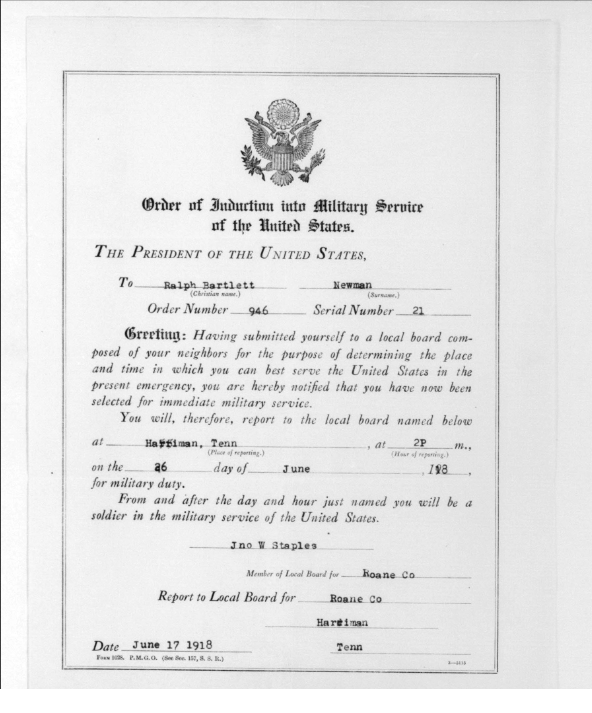 Order of Induction into Military Service
of the United States.
THE PRESIDENT OF THE UNITED STATES,
To Ralph Bartlett Newman
(Christian name.) (Surname.)
Order Number 946 Serial Number 21
Greeting: Having submitted yourself to a local board com-
posed of your neighbors for the purpose of determining the place
and time in which you can best serve the United States in the
present emergency, you are hereby notified that you have now been
selected for immediate military service.
You will, therefore, report to the local board named below
at Harriman, Tenn , at 2P m.,
(Place of reporting.) (Hour of reporting.)
on the 26 day of June , 1918 ,
for military duty.
From and after the day and hour just named you will be a
soldier in the military service of the United States.
Jno W Staples
Member of Local Board for Roane Co
Report to Local Board for Roane Co
Harriman
Date June 17 1918 Tenn
Form 1028. P.M.G.O. (See Sec. 157, S. S. R.)